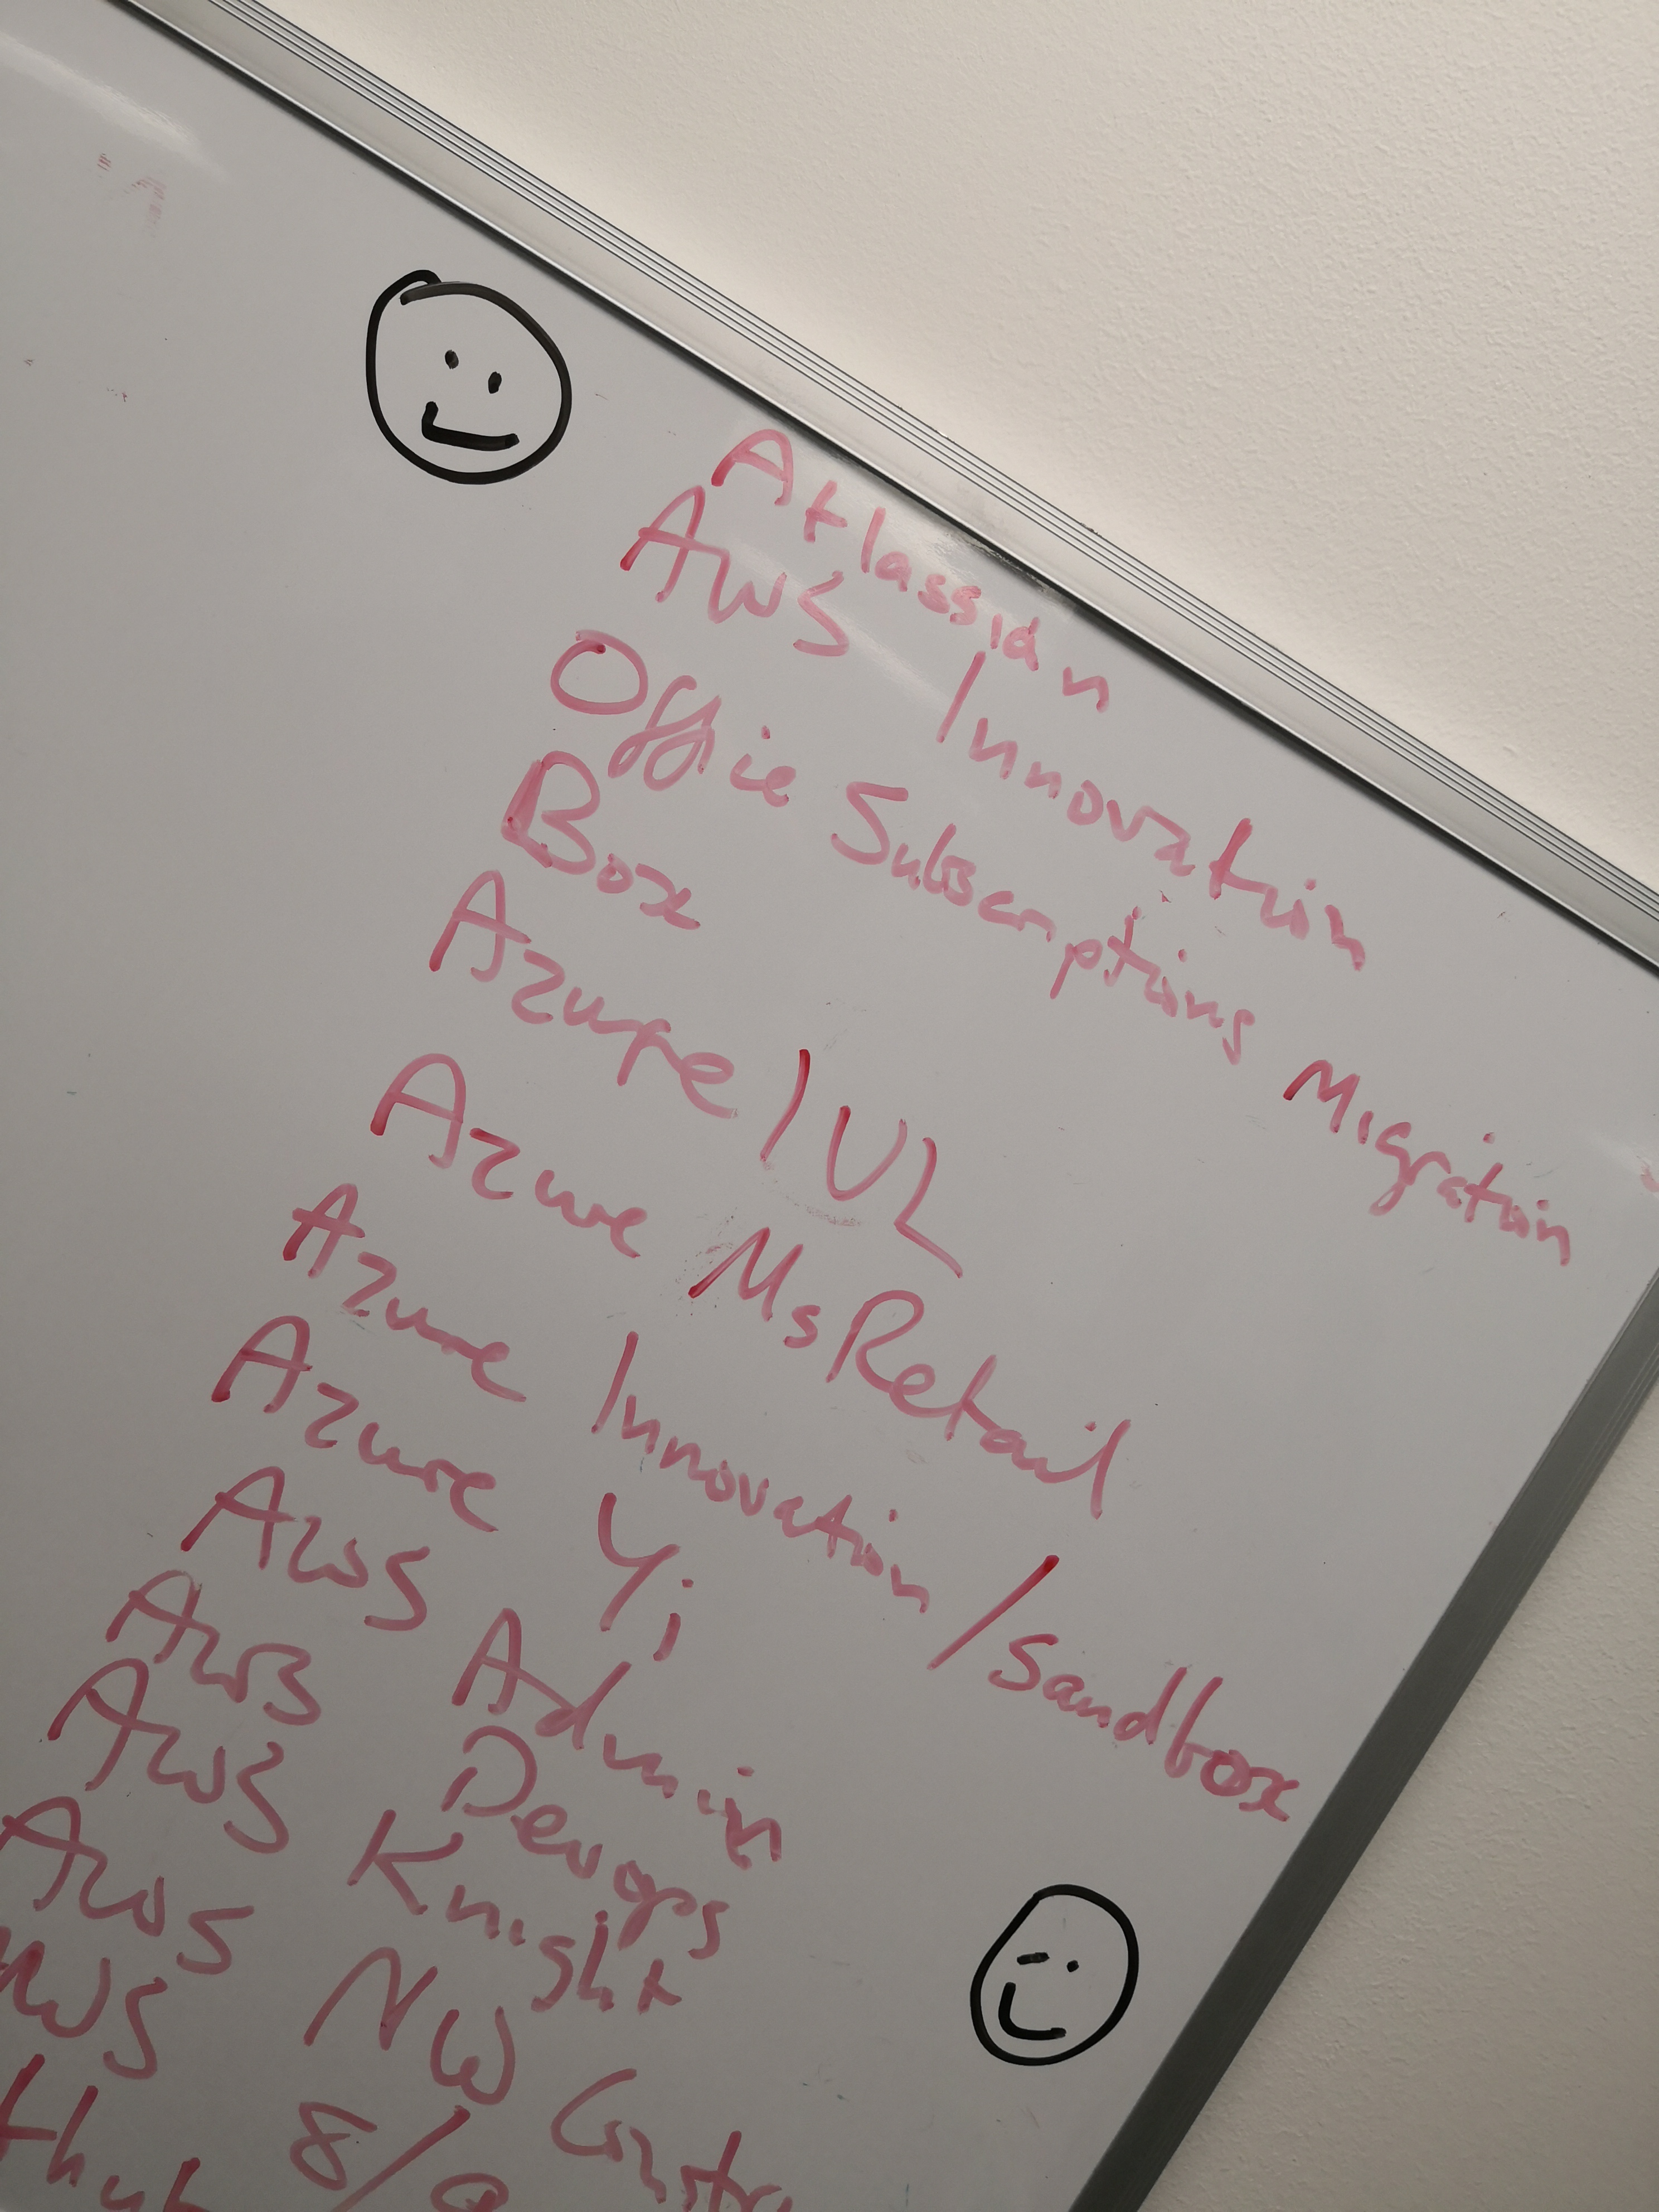 Atlassian
AWS Innovation
Offie Subscriptions Migration
Box
Azure / UL
Azure MsRetail
Azure Innovation / Sandbox
Azure Yi
AWS Admin
AWS Devops
AWS Knight
AWS NW Contr
AWS 8/9
thub